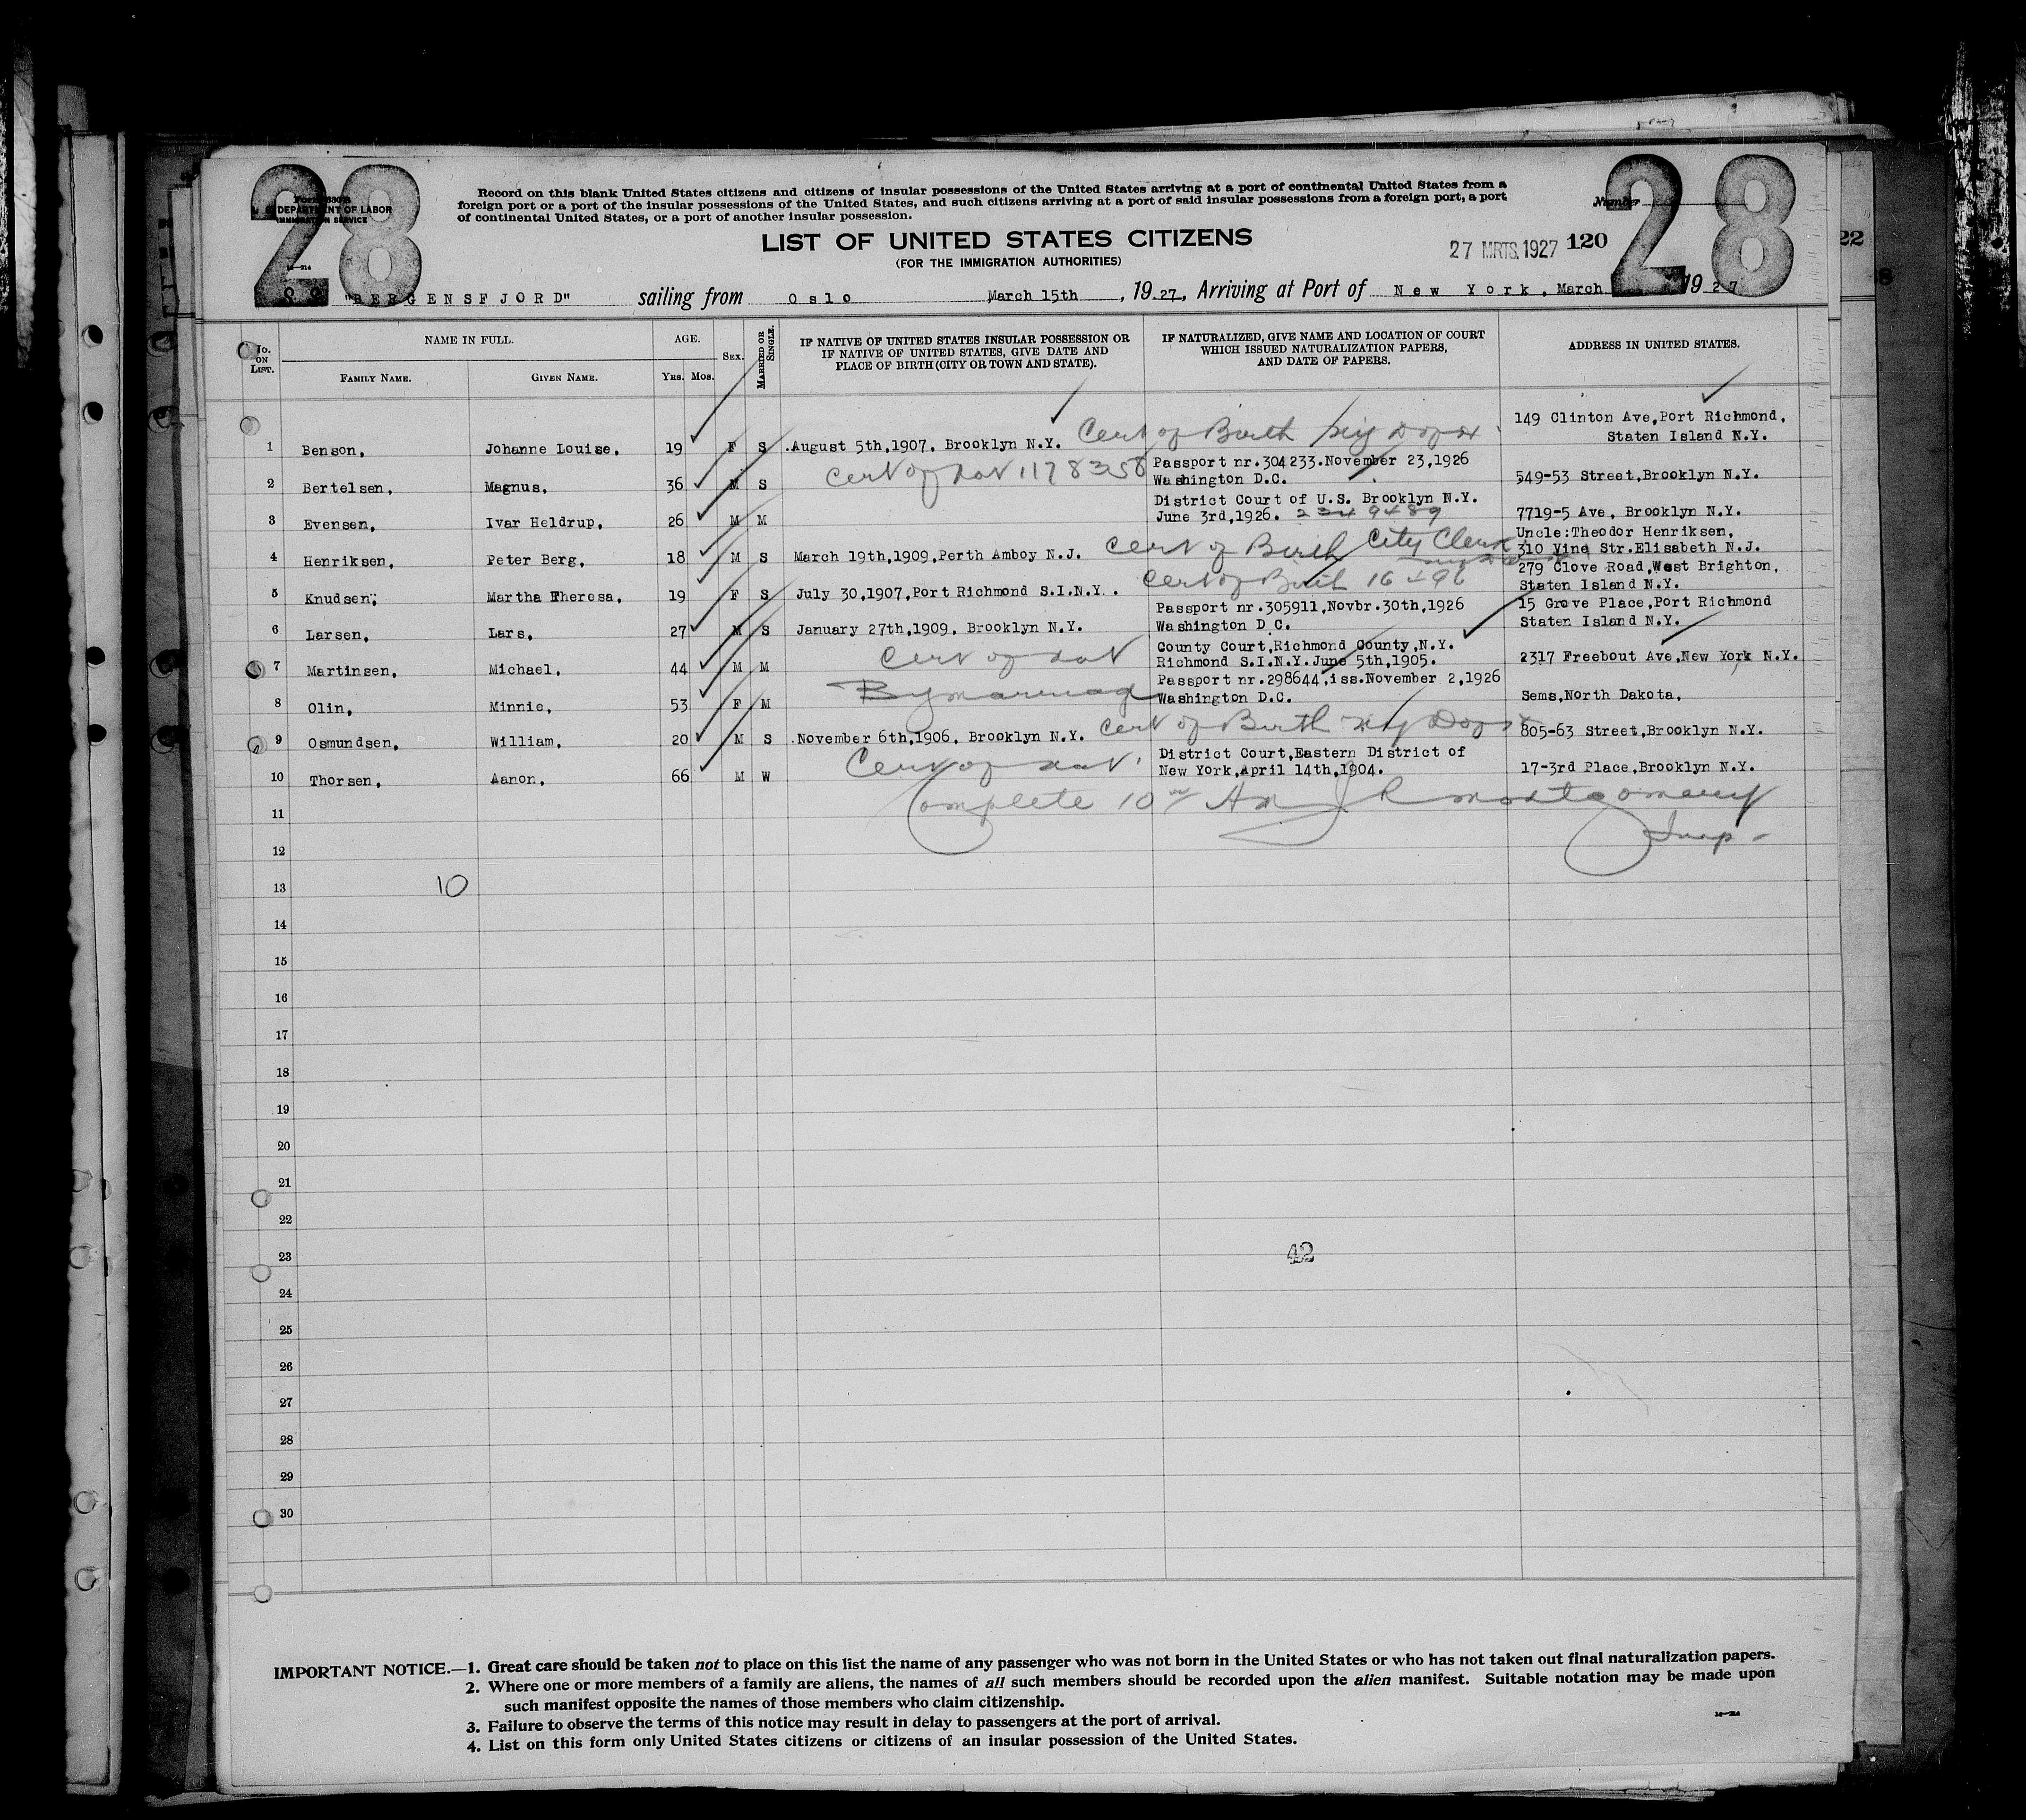 28
28
Form 630B
U. S. DEPARTMENT OF LABOR
IMMIGRATION SERVICE
Record on this blank United States citizens and citizens of insular possessions of the United States arriving at a port of continental United States from a
foreign port or a port of the insular possessions of the United States, and such citizens arriving at a port of said insular possessions from a foreign port, a port
of continental United States, or a port of another insular possession.
Number
LIST OF UNITED STATES CITIZENS
(FOR THE IMMIGRATION AUTHORITIES)
27 MRTS. 1927 120
22
"BERGENSFJORD" sailing from Oslo March 15th, 1927, Arriving at Port of New York, March 1927
No. ON LIST.
NAME IN FULL.
FAMILY NAME. GIVEN NAME.
AGE.
YRS. MOS.
SEX.
MARRIED OR SINGLE.
IF NATIVE OF UNITED STATES INSULAR POSSESSION OR
IF NATIVE OF UNITED STATES, GIVE DATE AND
PLACE OF BIRTH (CITY OR TOWN AND STATE).
IF NATURALIZED, GIVE NAME AND LOCATION OF COURT
WHICH ISSUED NATURALIZATION PAPERS,
AND DATE OF PAPERS.
ADDRESS IN UNITED STATES.
149 Clinton Ave,Port Richmond,
1 Benson, Johanne Louise, 19 F S .August 5th,1907, Brooklyn N.Y. Cert of Birth Staten Island N.Y.
Cert of Nat 1178358 Passport nr.304233.November 23,1926
2 Bertelsen, Magnus, 36 M S Washington D.C. 549-53 Street,Brooklyn N.Y.
District Court of U.S. Brooklyn N.Y.
3 Evensen, Ivar Heldrup, 26 M M June 3rd,1926. 7719-5 Ave, Brooklyn N.Y.
Uncle:Theodor Henriksen,
4 Henriksen, Peter Berg, 18 M S March 19th,1909,Perth Amboy N.J. Cert of Birth City Clerk 310 Vine Str.Elisabeth N.J.
Cert of Birth 279 Clove Road,West Brighton,
5 Knudsen, Martha Theresa, 19 F S July 30,1907,Port Richmond S.I.N.Y. Staten Island N.Y.
Passport nr.305911,Novbr.30th,1926 15 Grove Place,Port Richmond
6 Larsen, Lars, 27 M S January 27th,1909, Brooklyn N.Y. Washington D.C. Staten Island N.Y.
Cert of Nat County Court,Richmond County,N.Y.
7 Martinsen, Michael, 44 M M Richmond S.I.N.Y.June 5th,1905. 2317 Freebout Ave,New York N.Y.
By marriage Passport nr.298644,iss.November 2,1926
8 Olin, Minnie, 53 F M Washington D.C. Sems,North Dakota,
9 Osmundsen, William, 20 M S .November 6th,1906, Brooklyn N.Y. Cert of Birth 805-63 Street,Brooklyn N.Y.
Cert of Nat. District Court,Eastern District of
10 Thorsen, Aanon, 66 M W New York,April 14th,1904. 17-3rd Place,Brooklyn N.Y.
Complete 10 Montgomery
11
Insp
12
13 10
14
15
16
17
18
19
20
21
22
23 42
24
25
26
27
28
29
30
IMPORTANT NOTICE.—1. Great care should be taken not to place on this list the name of any passenger who was not born in the United States or who has not taken out final naturalization papers.
2. Where one or more members of a family are aliens, the names of all such members should be recorded upon the alien manifest. Suitable notation may be made upon
such manifest opposite the names of those members who claim citizenship.
3. Failure to observe the terms of this notice may result in delay to passengers at the port of arrival.
4. List on this form only United States citizens or citizens of an insular possession of the United States.